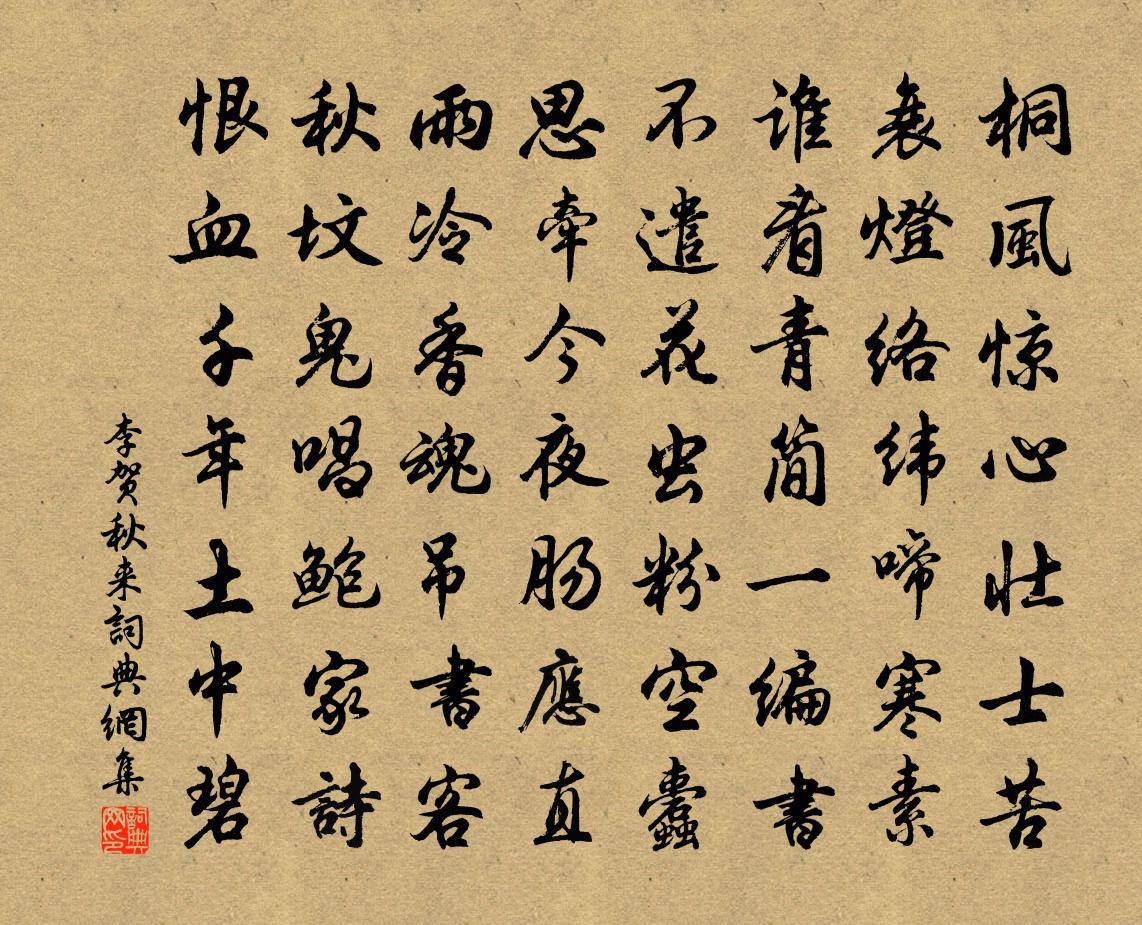 桐風惊心壮士苦
衰燈络纬啼寒素
谁看青简一编書
不遣花虫粉空蠹
思牵今夜肠應直
雨冷香魂吊書客
秋坟鬼唱鲍家詩
恨血千年土中碧
李贺秋来詞典網集
詞典网印